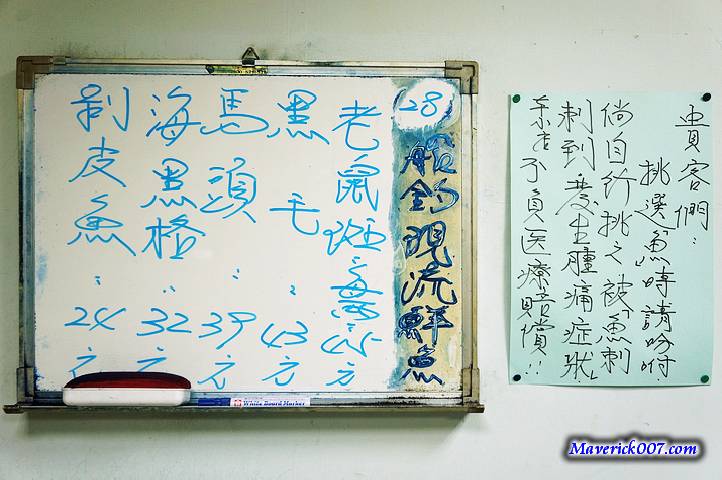 28
船釣現流鮮魚
老鼠斑 45元
黑毛〃43元
馬頭〃39元
海黑格〃32元
剝皮魚〃24元
White Board Marker
貴客們：
挑選「魚」時請吩咐
倘自行挑之被「魚刺
刺到發生腫痛症狀」
本店不負医療賠償!!
Maverick007.com